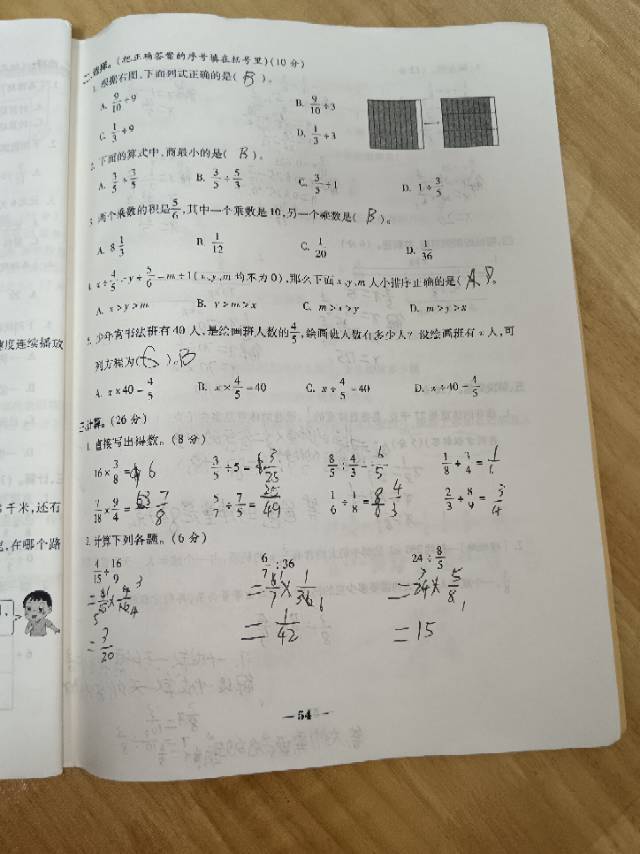 二、选择。(把正确答案的序号填在括号里)(10分)
1. 根据右图,下面列式正确的是( B )。
A. 9/10÷9 B. 9/10÷3
C. 1/3÷9 D. 1/3÷3
2. 下面的算式中,商最小的是( B )。
A. 3/5÷3/5 B. 3/5÷5/3 C. 3/5÷1 D. 1÷3/5
3. 两个乘数的积是5/6,其中一个乘数是10,另一个乘数是( B )。
A. 8 1/3 B. 1/12 C. 1/20 D. 1/36
(x、y、m 均不为0),那么下面x、y、m
A. x>y>m B. y>m>x C. m>x>y D. m>y>x
5. 少年宫书法班有40人,是绘画班人数的4/5,绘画班人数有多少人?设绘画班有x人,可
列方程为( )。B
A. x×40=4/5 B. x×4/5=40 C. x÷4/5=40 D. x÷40=4/5
三、计算。(26分)
1. 直接写出得数。(8分)
16×3/8= 6 3/5÷5= 3/25 8/5÷4/3= 6/5 1/8÷3/4= 1/6
7/18×9/4= 7/8 5/7÷7/5= 25/49 1/6÷1/8= 4/3 2/3÷8/9= 3/4
2. 计算下列各题。(6分)
4/15÷16/9 6/7÷36 24÷8/5
=6/7×1/36 =24×5/8
=3/20 =1/42 =15
—54—
速度连续播放
千米,还有
在哪个路